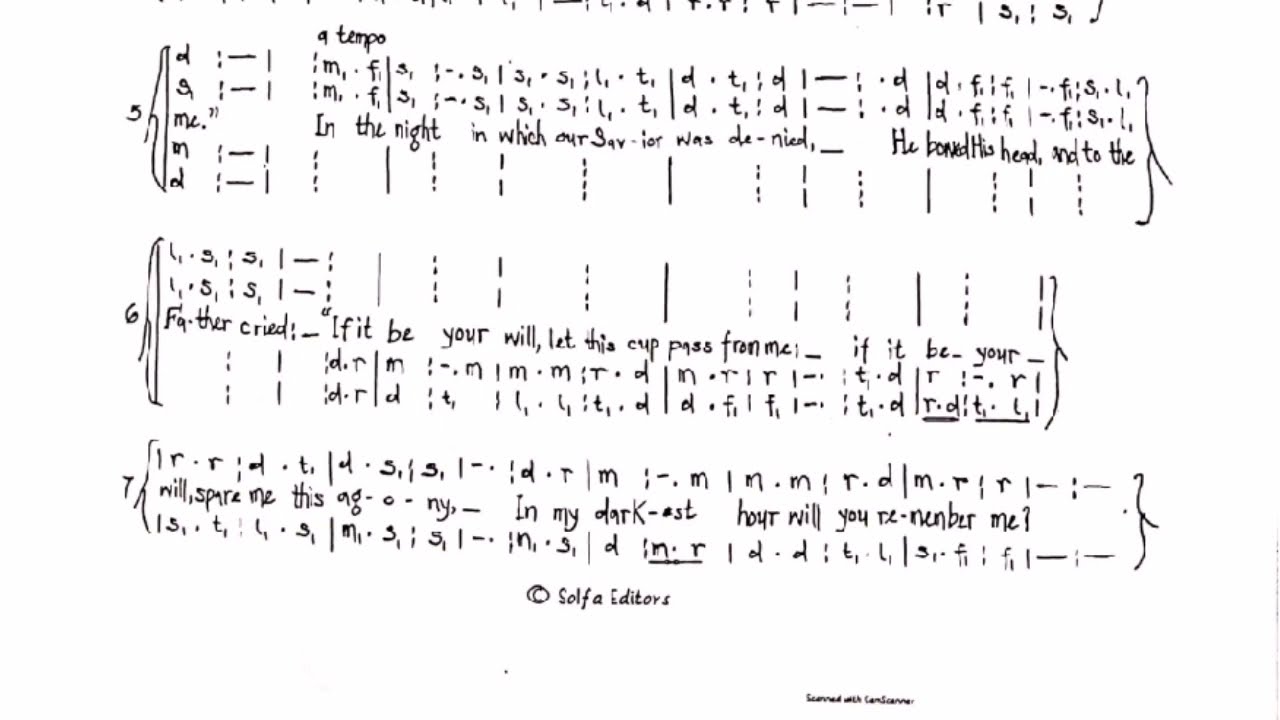 a tempo
d :— | :m₁ . f₁ | s₁ :-. s₁ | s₁ . s₁ : l₁ . t₁ | d . t₁ : d | — : . d | d . f₁ : f₁ | -. f₁ : s₁ . l₁
5 s₁ :— | :m₁ . f₁ | s₁ :-. s₁ | s₁ . s₁ : l₁ . t₁ | d . t₁ : d | — : . d | d . f₁ : f₁ | -. f₁ : s₁ . l₁
me." In the night in which our Sav-ior was de-nied, — He bowed His head, and to the
m :— | : | : | : | : | : | : | :
d :— | : | : | : | : | : | : | :
l₁ . s₁ : s₁ | — : | : | : | : | : | : |
6 l₁ . s₁ : s₁ | — : | : | : | : | : | : |
Fa-ther cried: — "If it be your will, let this cup pass from me; — if it be- your —
: | :d . r | m :-. m | m . m : r . d | m . r : r | -. : t₁ . d | r :-. r |
: | :d . r | d : t₁ | l₁ . l₁ : t₁ . d | d . f₁ : f₁ | -. : t₁ . d | r . d : t₁ . l₁ |
| r . r : d . t₁ | d . s₁ : s₁ | -. : d . r | m :-. m | m . m : r . d | m . r : r | — : —
7 will, spare me this ag-o-ny, — In my dark-est hour will you re-member me?
| s₁ . t₁ : l₁ . s₁ | m₁ . s₁ : s₁ | -. : m₁ . s₁ | d : m . r | d . d : t₁ . l₁ | s₁ . f₁ : f₁ | — : —
© Solfa Editors
Scanned with CamScanner